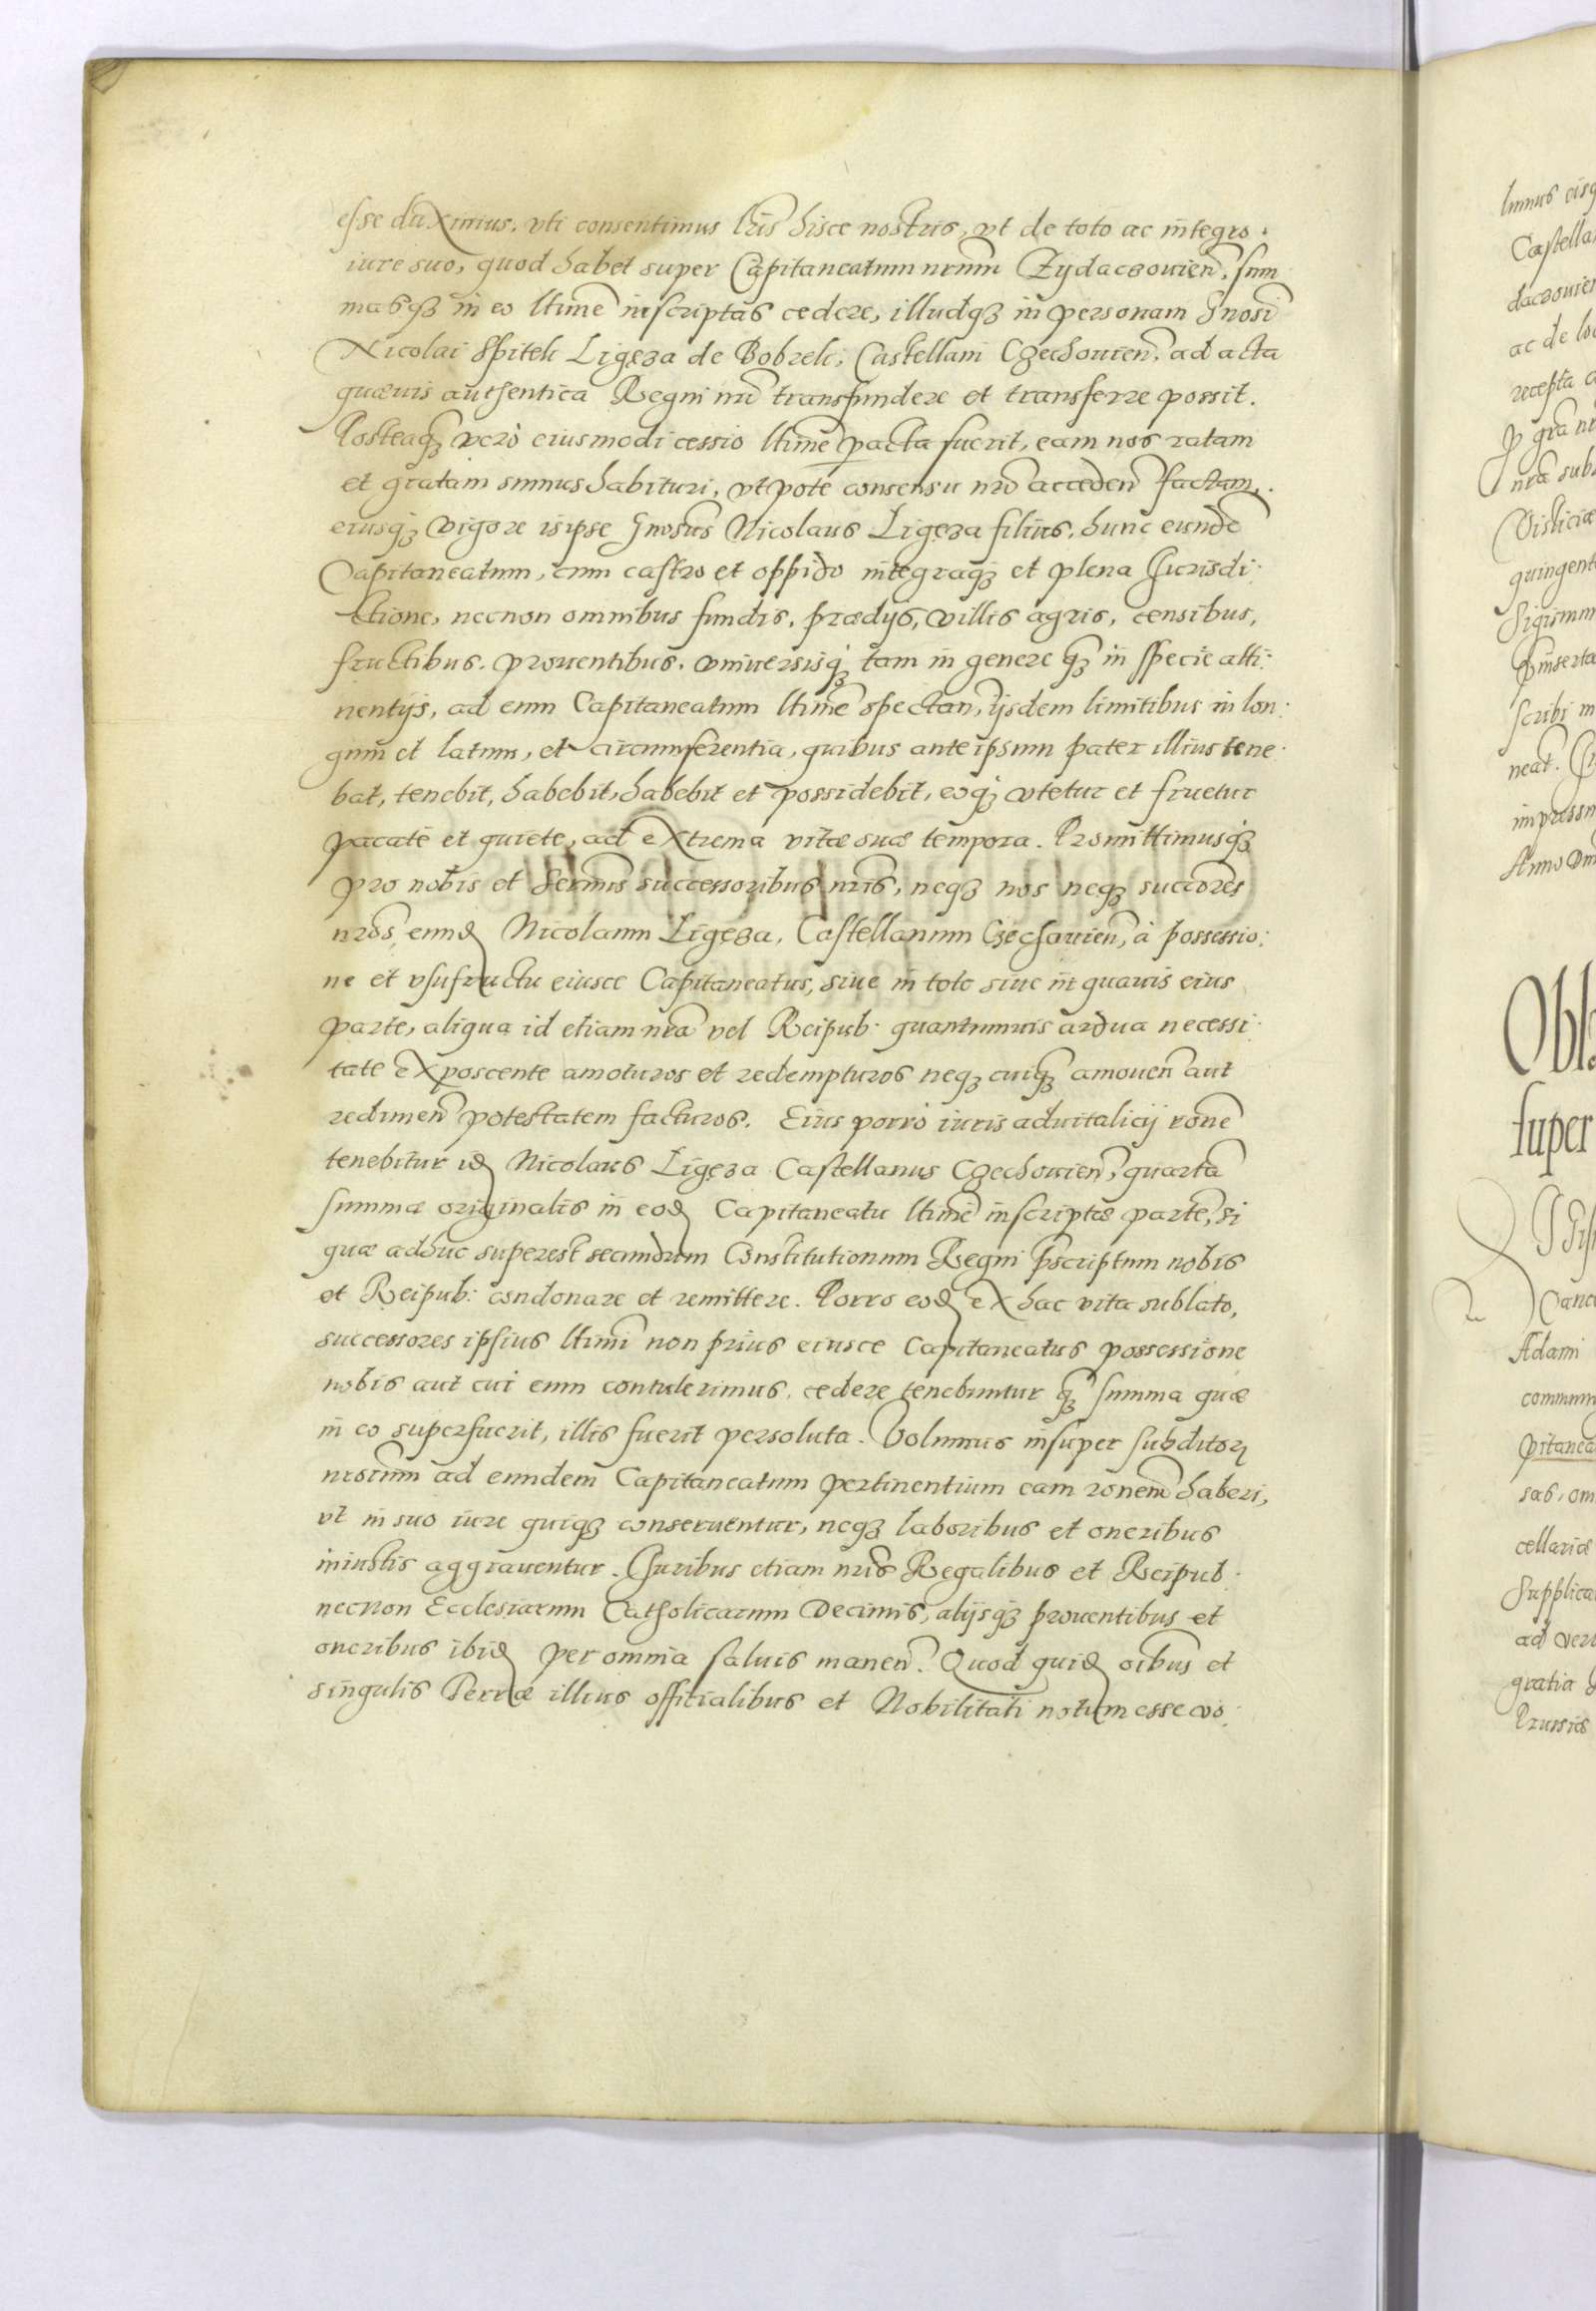 esse duximus, vti consentimus lr̃is hisce nostris, vt de toto ac integro
iure suo, quod habet super Capitaneatum nrum̃ Zydaczouien̄, sum
masq₃ in eo ltime͠ inscriptas cedere, illudq₃ in personam Gnosi͠
Nicolai Spitek Ligęza de Bobrek, Castellani Czechouien̄, ad acta
quæuis authentica Regni nri͠ transfundere et transferre possit.
Posteaq₃ verò eiusmodi cessio ltime͠ pacta fuerit, eam nos ratam
et gratam sumus habituri, vt pote consensu nro͠ acceden̄ factam,
eiusq₃ vigore is ipse Gnosus͠ Nicolaus Ligęza filius, hunc eunde͠
Capitaneatum, cum castro et oppido integraq₃ et plena Jurisdi:
ctione, necnon omnibus fundis, prædijs, villis agris, censibus,
fructibus, prouentibus, vniuersisq₃ tam in genere q₃ in specie atti:
nentijs, ad eum Capitaneatum ltime͠ spectan̄, ijsdem limitibus in lon:
gum et latum, et circumferentia, quibus ante ipsum pater illius tene:
bat, tenebit, habebit, habebit et possidebit, eoq₃ vtetur et fruetur
pacatè et quietè, ad extrema vitæ suæ tempora. Promittimusq₃
pro nobis et Sermis͠ successoribus nris͠, neq₃ nos neq₃ succores͠
nros͠ eund Nicolaum Ligęza, Castellanum Czechouien̄, à possessio:
ne et vsufructu eiusce Capitaneatus, siue in toto siue in quauis eius
parte, aliqua id etiam nra͠ vel Reipub: quantumuis ardua necessi:
tate exposcente amoturos et redempturos neq₃ cuiq₃ amouen̄ aut
redimen̄ potestatem facturos. Eius porrò iuris aduitalicij rone͠
tenebitur id Nicolaus Ligęza Castellanus Czechouien̄, quarta͠
summæ originalis in eod Capitaneatu ltime͠ inscriptæ parte͠, si
quæ adhuc superest secundum Constitutionum Regni p̄scriptum nobis
et Reipub: condonare et remittere. Porro eod ex hac vita sublato,
successores ipsius ltimi͠ non prius eiusce Capitaneatus possessione
nobis aut cui eum contulerimus, cedere tenebuntur q₃ summa quæ
in eo superfuerit, illis fuerit persoluta. Volumus insuper subditorꝝ
nrorum͠ ad eundem Capitaneatum pertinentium eam ronem͠ haberi,
vt in suo iure quiq₃ conseruentur, neq₃ laboribus et oneribus
iniustis aggrauentur. Juribus etiam nris͠ Regalibus et Reipub:
necnon Ecclesiarum Catholicarum Decimis, alijsq₃ prouentibus et
oneribus ibid per omnia saluis manen̄. Quod quid oibus͠ et
singulis Terræ illius officialibus et Nobilitati notum esse vo:
lumus eisq
daczouien
ac de
recepta
nra͠
Visliciæ
quingent
inserta
scribi
neat.
impressu
Anno
Obla
super
Canc
Adami
commun
pitanea
sas, om
cellariæ
Supplica
ad
gratia
Prussiæ